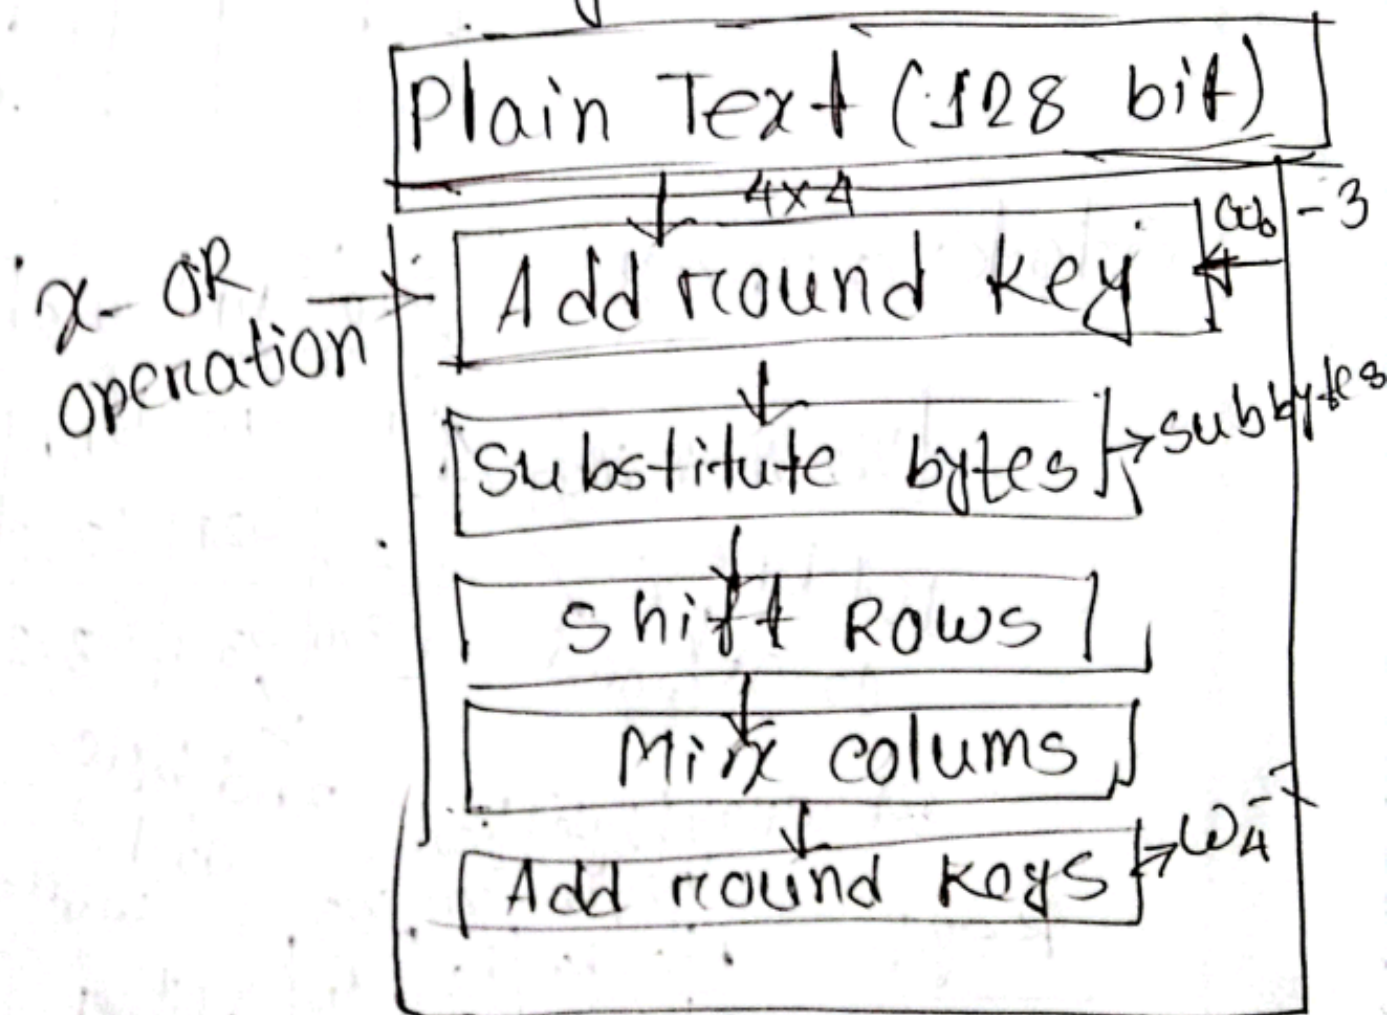 Plain Text (128 bit)
4x4
- 3
x- OR
operation
Add round key
Substitute bytes
subbytes
Shift Rows
Mix colums
Add round keys
W4